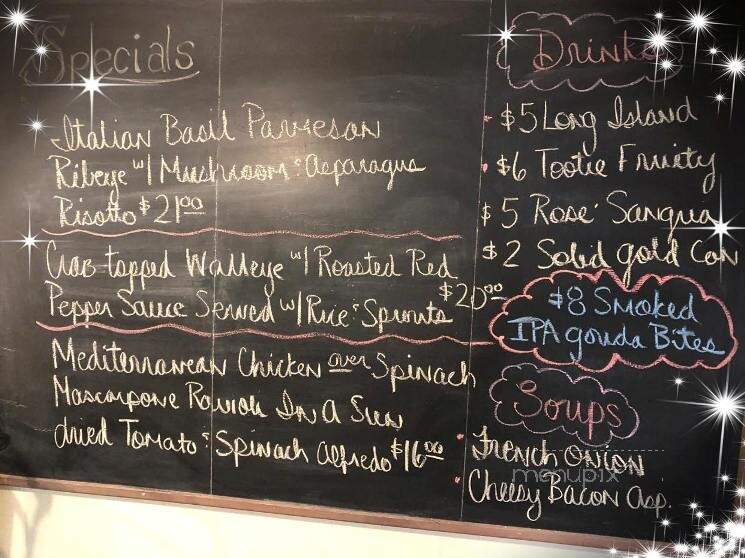 Specials
Italian Basil Parmesan
Ribeye w/ Mushroom & Asparagus
Risotto $21.00
Crab-topped Walleye w/ Roasted Red
Pepper Sauce Served w/ Rice & Sprouts $20.00
Mediterranean Chicken over Spinach
Mascarpone Ravioli In A Sun
dried Tomato & Spinach Alfredo $16.00
Drinks
$5 Long Island
$6 Tootie Fruity
$5 Rose' Sangria
$2 Solid Gold Can
$8 Smoked
IPA gouda Bites
Soups
French Onion
Cheesy Bacon Asp.
menupix